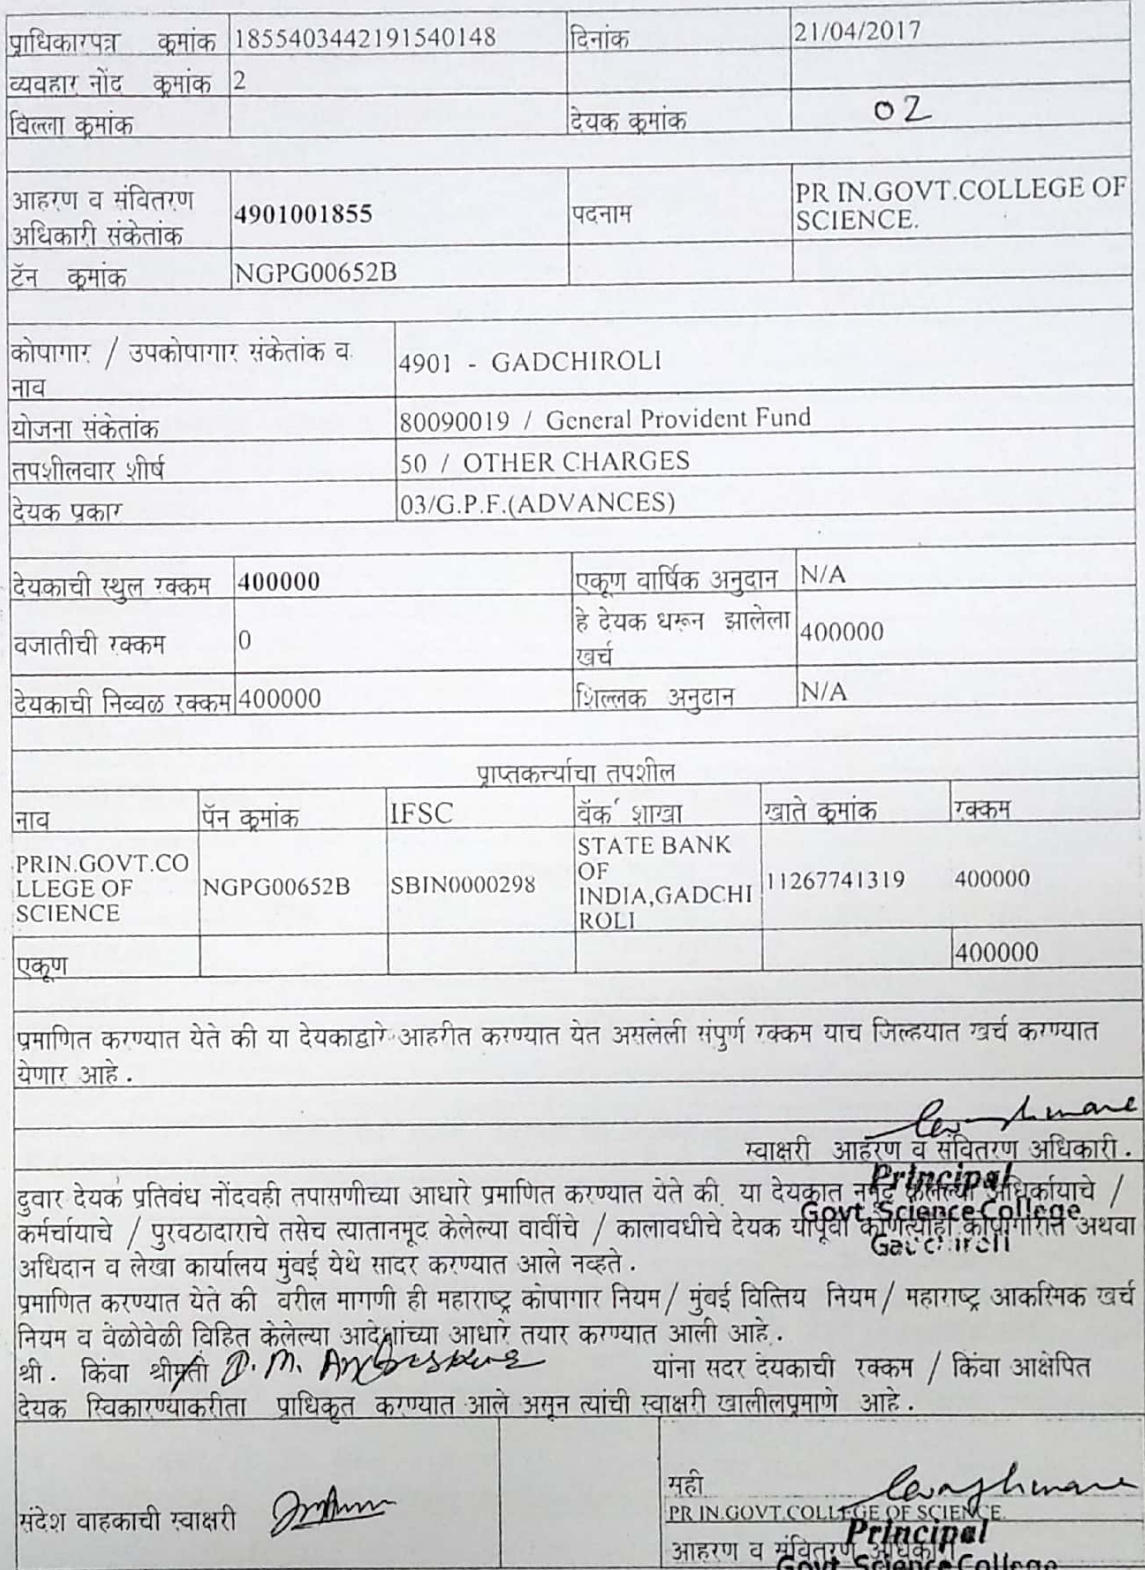 प्राधिकारपत्र क्रमांक 1855403442191540148 दिनांक 21/04/2017
व्यवहार नोंद क्रमांक 2
विल्ला क्रमांक देयक क्रमांक 02
आहरण व संवितरण अधिकारी संकेतांक 4901001855 पदनाम PR IN.GOVT.COLLEGE OF SCIENCE.
टॅन क्रमांक NGPG00652B
कोपागार / उपकोपागार संकेतांक व नाव 4901 - GADCHIROLI
योजना संकेतांक 80090019 / General Provident Fund
तपशीलवार शीर्ष 50 / OTHER CHARGES
देयक प्रकार 03/G.P.F.(ADVANCES)
देयकाची स्थुल रक्कम 400000 एकूण वार्षिक अनुदान N/A
वजातीची रक्कम 0 हे देयक धरून झालेला खर्च 400000
देयकाची निव्वळ रक्कम 400000 शिल्लक अनुदान N/A
प्राप्तकर्त्याचा तपशील
नाव पॅन क्रमांक IFSC बॅंक शाखा खाते क्रमांक रक्कम
PRIN.GOVT.COLLEGE OF SCIENCE NGPG00652B SBIN0000298 STATE BANK OF INDIA,GADCHIROLI 11267741319 400000
एकूण 400000
प्रमाणित करण्यात येते की या देयकाद्वारे आहरीत करण्यात येत असलेली संपुर्ण रक्कम याच जिल्हयात खर्च करण्यात
येणार आहे.
स्वाक्षरी आहरण व संवितरण अधिकारी.
Principal
Govt Science College
Gadchiroli
दुवार देयक प्रतिबंध नोंदवही तपासणीच्या आधारे प्रमाणित करण्यात येते की. या देयकात नमूद केलेल्या अधिर्कायाचे /
कर्मचार्याचे / पुरवठादाराचे तसेच त्यातानमूद केलेल्या वावींचे / कालावधीचे देयक यापूर्वी कोणत्याही कोपागारात अथवा
अधिदान व लेखा कार्यालय मुंबई येथे सादर करण्यात आले नव्हते.
प्रमाणित करण्यात येते की वरील मागणी ही महाराष्ट्र कोपागार नियम/ मुंबई वित्तिय नियम/ महाराष्ट्र आकस्मिक खर्च
नियम व वेळोवेळी विहित केलेल्या आदेशांच्या आधारे तयार करण्यात आली आहे.
श्री. किंवा श्रीमती D. M. यांना सदर देयकाची रक्कम / किंवा आक्षेपित
देयक स्विकारण्याकरीता प्राधिकृत करण्यात आले असून त्यांची स्वाक्षरी खालीलप्रमाणे आहे.
संदेश वाहकाची स्वाक्षरी
सही
PR IN.GOVT.COLLEGE OF SCIENCE.
Principal
आहरण व संवितरण अधिकारी
Govt Science College